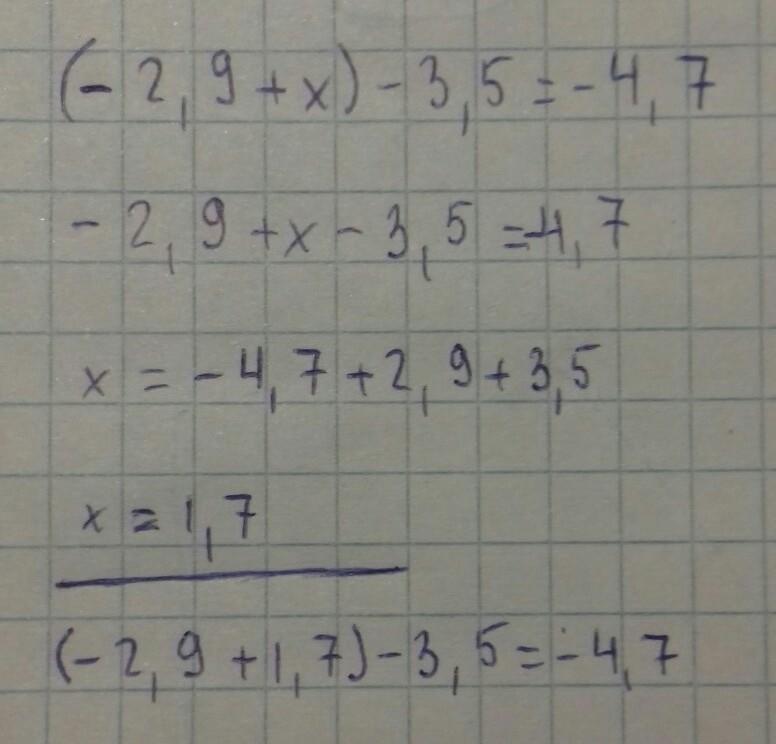 (-2,9+x)-3,5=-4,7
-2,9+x-3,5=-4,7
x=-4,7+2,9+3,5
x=1,7
(-2,9+1,7)-3,5=-4,7